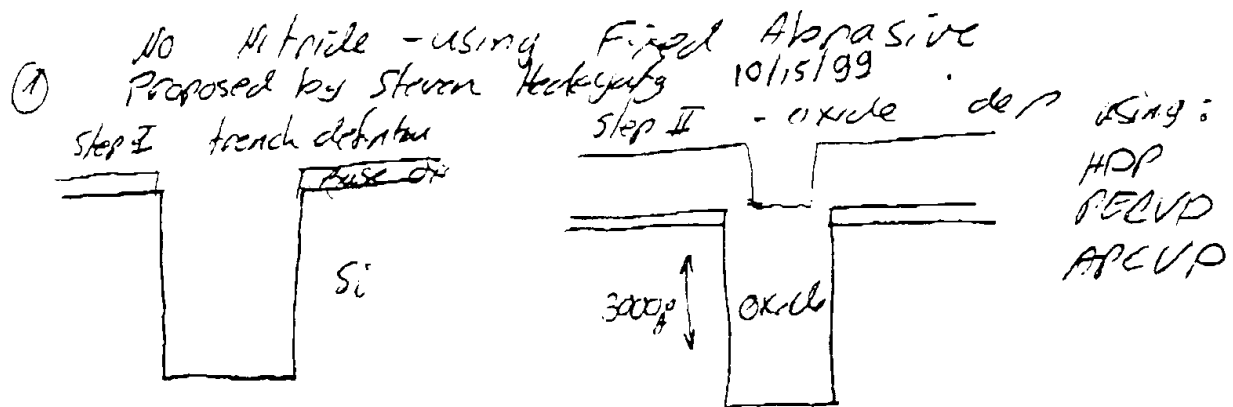 No Nitride - using Fixed Abrasive
① Proposed by Steven 10/15/99
Step I trench definition
Step II - oxide dep using:
HDP
PECVD
APCVD
Si
3000Å
oxide